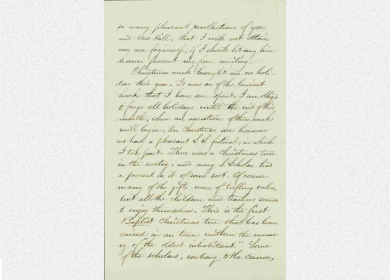 so many pleasant recollections of you
and Mrs Hall, that I could not obtain
my own forgiveness, if I should let any
cause prevent me from writing.
Christmas week brought me no holi-
days this year. It was one of the busiest
weeks that I have ever spent. I am obliged
to forego all holidays until the end of this
month, when our vacation of three weeks
will begin. On Christmas eve however
we had a pleasant S. S. festival, in which
I took part. There was a Christmas tree
in the vestry, and every S. Scholar had
a present on it of some sort. Of course
many of the gifts were of trifling value,
but all the children and teachers seemed
to enjoy themselves. This is the first
"Baptist" Christmas tree that has been
raised in our town within the memo-
ry of "the oldest inhabitant." Some
of the scholars, contrary to the custom,